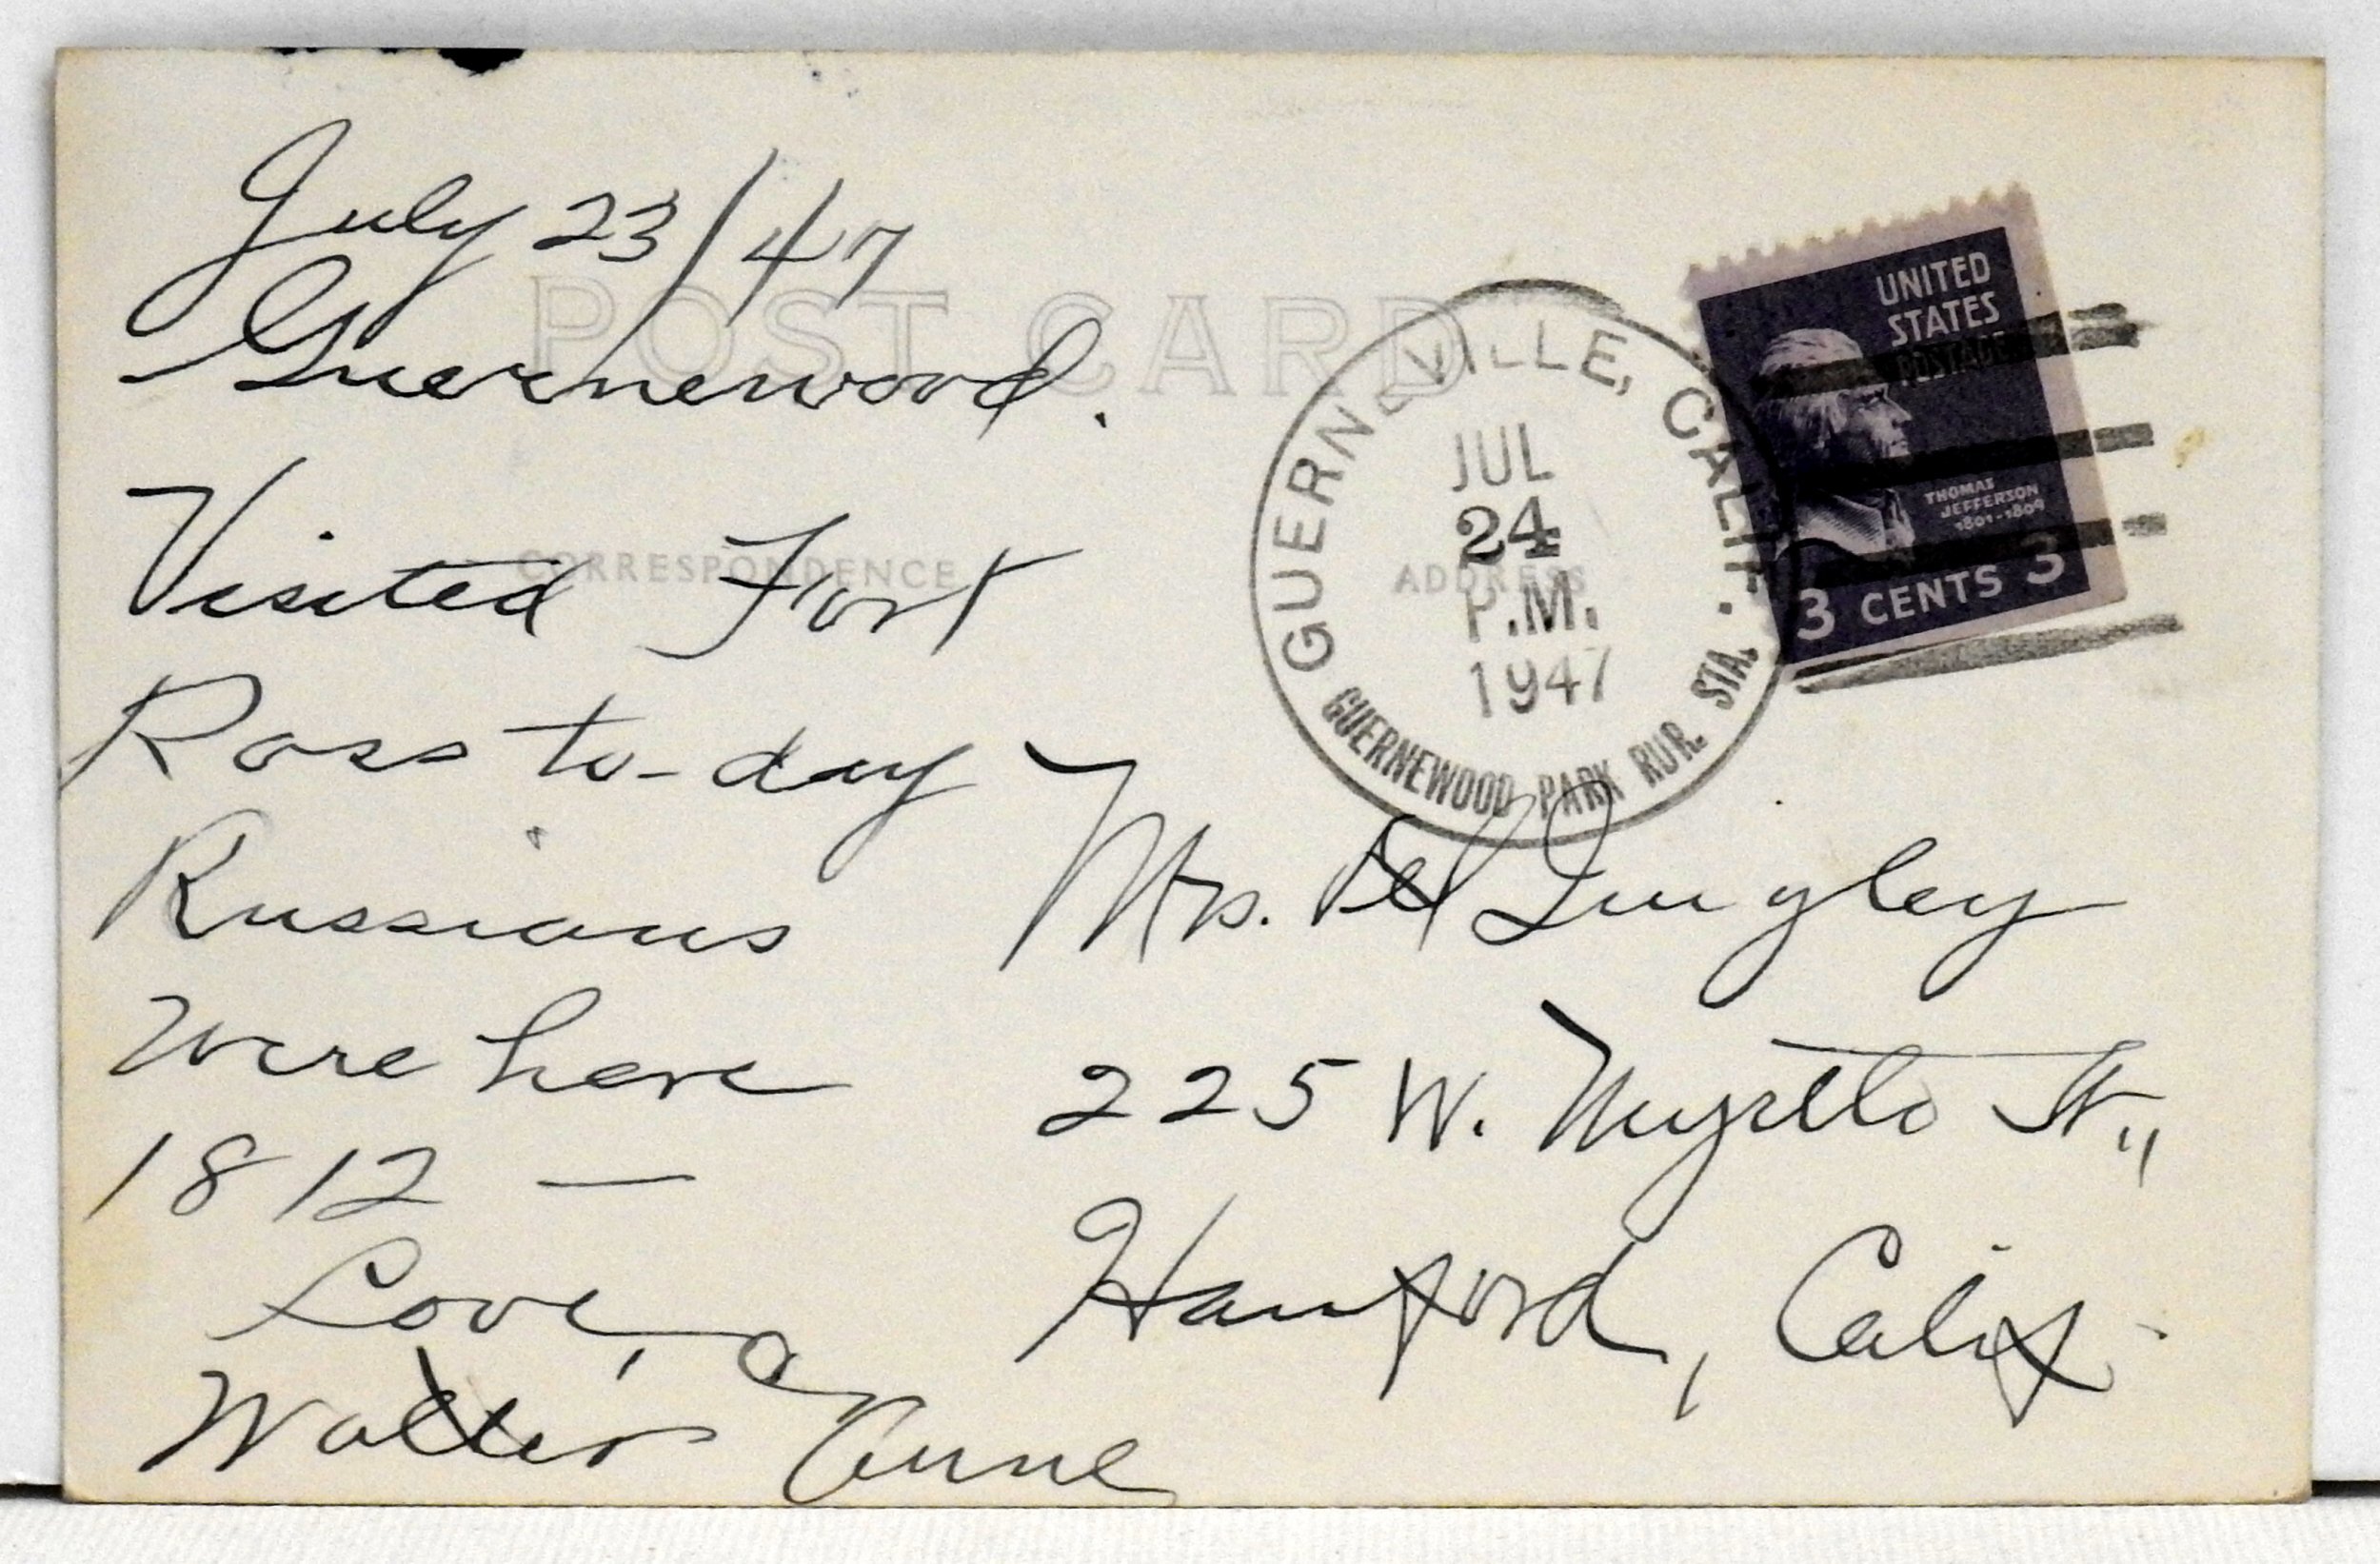 July 23/47
Guernewood.
Visited Fort
Ross to-day
Russians
were here
1812 —
Love,
Walter & Anne
POST CARD
CORRESPONDENCE
ADDRESS
GUERNEVILLE, CALIF.
JUL
24
P.M.
1947
GUERNEWOOD PARK RUR. STA.
UNITED
STATES
POSTAGE
THOMAS
JEFFERSON
1801-1809
3 CENTS 3
Mrs.
225 W. Myrtle St.,
Hanford, Calif.